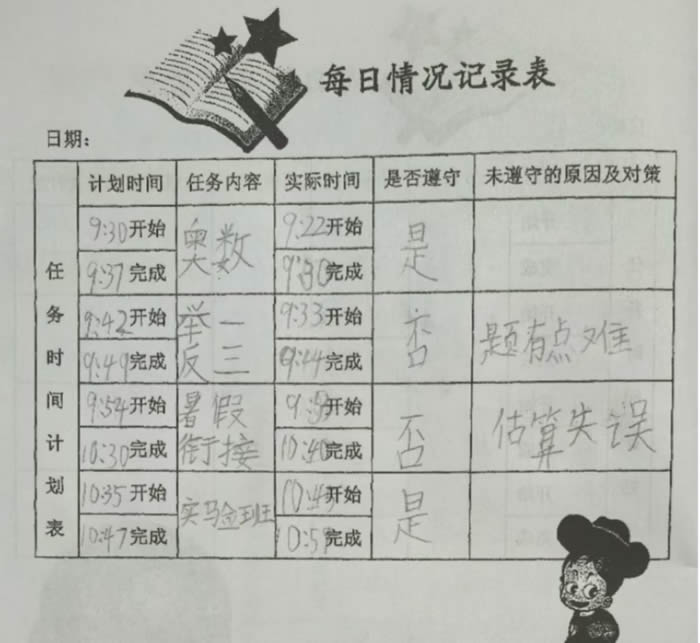 每日情况记录表
日期：
计划时间 任务内容 实际时间 是否遵守 未遵守的原因及对策
任务时间计划表
9:30开始 奥数 9:22开始 是
9:37完成 9:30完成
9:42开始 举一 9:33开始 否 题有点难
9:49完成 反三 9:44完成
9:54开始 暑假 开始 否 估算失误
10:30完成 衔接 10:40完成
10:35开始 实验班 10:45开始 是
10:47完成 完成